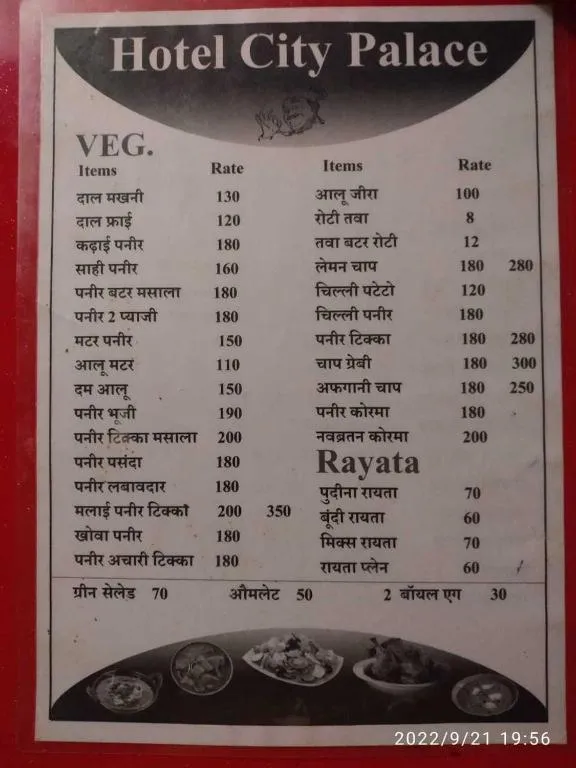 Hotel City Palace
VEG.
Items Rate
दाल मखनी 130
दाल फ्राई 120
कढ़ाई पनीर 180
साही पनीर 160
पनीर बटर मसाला 180
पनीर 2 प्याजी 180
मटर पनीर 150
आलू मटर 110
दम आलू 150
पनीर भूजी 190
पनीर टिक्का मसाला 200
पनीर पसंदा 180
पनीर लबावदार 180
मलाई पनीर टिक्काँ 200 350
खोवा पनीर 180
पनीर अचारी टिक्का 180
Items Rate
आलू जीरा 100
रोटी तवा 8
तवा बटर रोटी 12
लेमन चाप 180 280
चिल्ली पटेटो 120
चिल्ली पनीर 180
पनीर टिक्का 180 280
चाप ग्रेबी 180 300
अफगानी चाप 180 250
पनीर कोरमा 180
नवब्रतन कोरमा 200
Rayata
पुदीना रायता 70
बूंदी रायता 60
मिक्स रायता 70
रायता प्लेन 60
ग्रीन सेलेड 70 औमलेट 50 2 बॉयल एग 30
2022/9/21 19:56